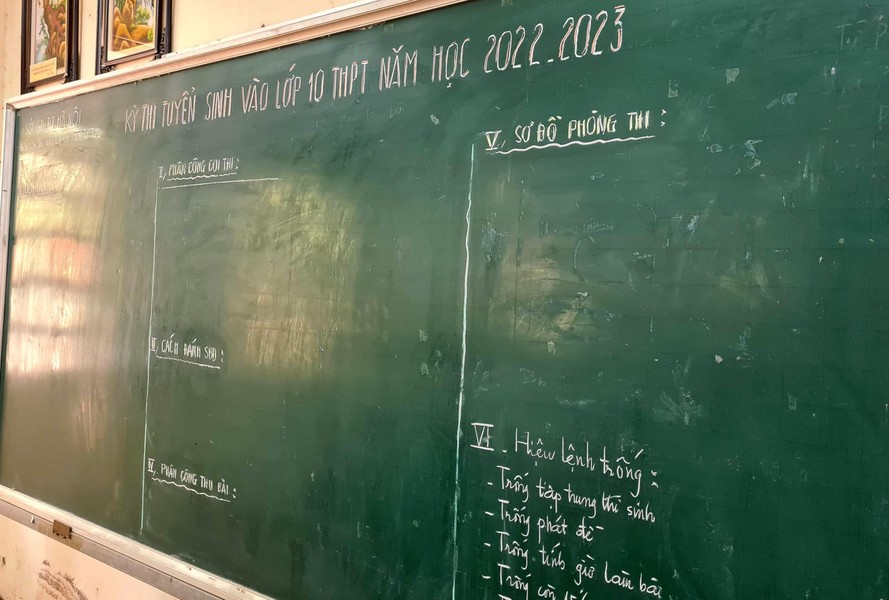 KỲ THI TUYỂN SINH VÀO LỚP 10 THPT NĂM HỌC 2022-2023
I, PHÂN CÔNG COI THI:
II, CÁCH ĐÁNH SBD:
IV, PHÂN CÔNG THU BÀI:
V, SƠ ĐỒ PHÒNG THI:
VI. Hiệu lệnh trống:
- Trống tập trung thí sinh
- Trống phát đề
- Trống tính giờ làm bài
- Trống còn